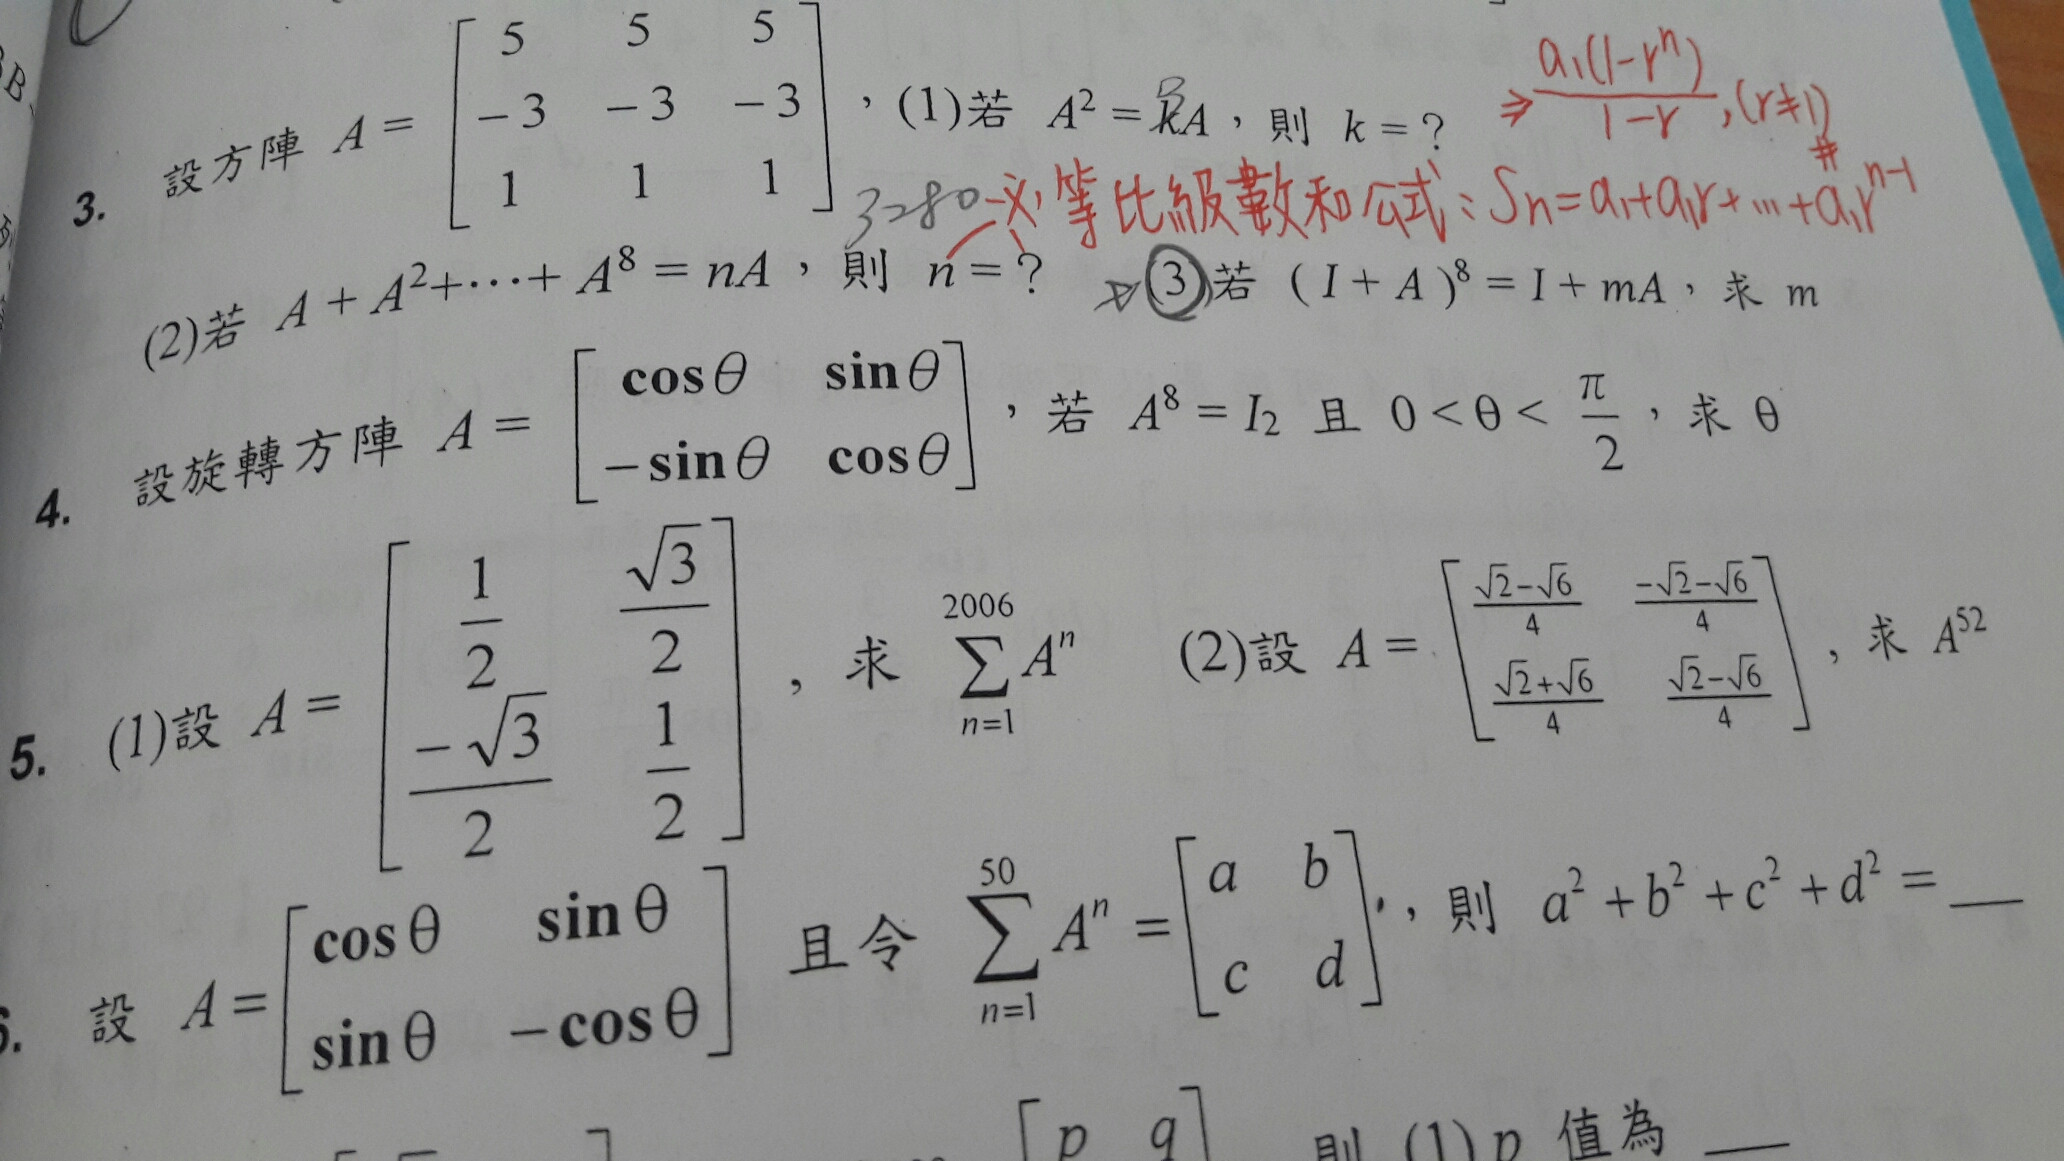 3. 設方陣 A = [5 5 5; -3 -3 -3; 1 1 1]，(1)若 A² = kA，則 k = ?
3
⇒ a₁(1-rⁿ)/(1-r), (r≠1) #
3280 必 等比級數和公式：Sn = a₁+a₁r+…+a₁rⁿ⁻¹
(2)若 A + A² + ⋯ + A⁸ = nA，則 n = ? ③若 ( I + A )⁸ = I + mA，求 m
4. 設旋轉方陣 A = [cosθ sinθ; -sinθ cosθ]，若 A⁸ = I₂ 且 0 < θ < π/2，求 θ
5. (1)設 A = [1/2 √3/2; -√3/2 1/2]，求 ∑_{n=1}^{2006} Aⁿ (2)設 A = [(√2-√6)/4 (-√2-√6)/4; (√2+√6)/4 (√2-√6)/4]，求 A⁵²
6. 設 A = [cosθ sinθ; sinθ -cosθ] 且令 ∑_{n=1}^{50} Aⁿ = [a b; c d]，則 a² + b² + c² + d² = __
[p q] 則 (1) p 值為 __